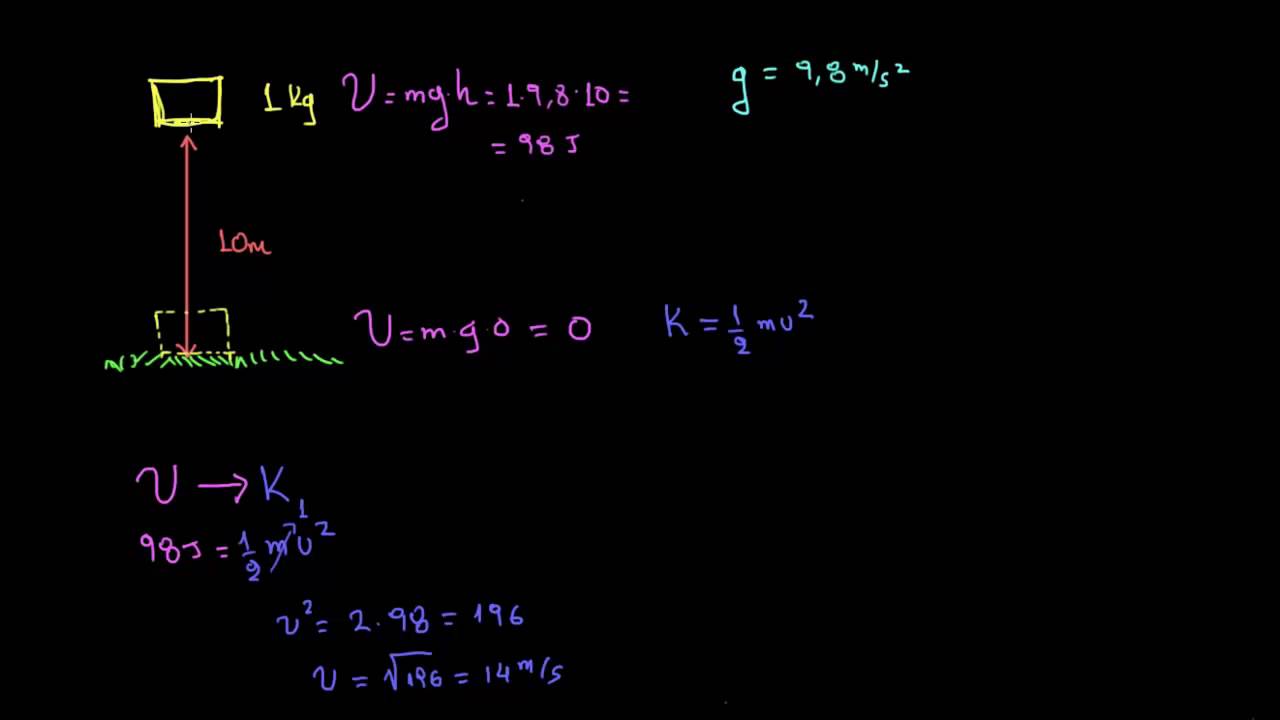 1 Kg U = mg.h = 1.9,8.10 = g = 9,8 m/s²
= 98 J
10m
U = m.g.0 = 0 K = 1/2 mv²
U → K
98J = 1/2 m v² 1
v² = 2.98 = 196
v = √196 = 14 m/s